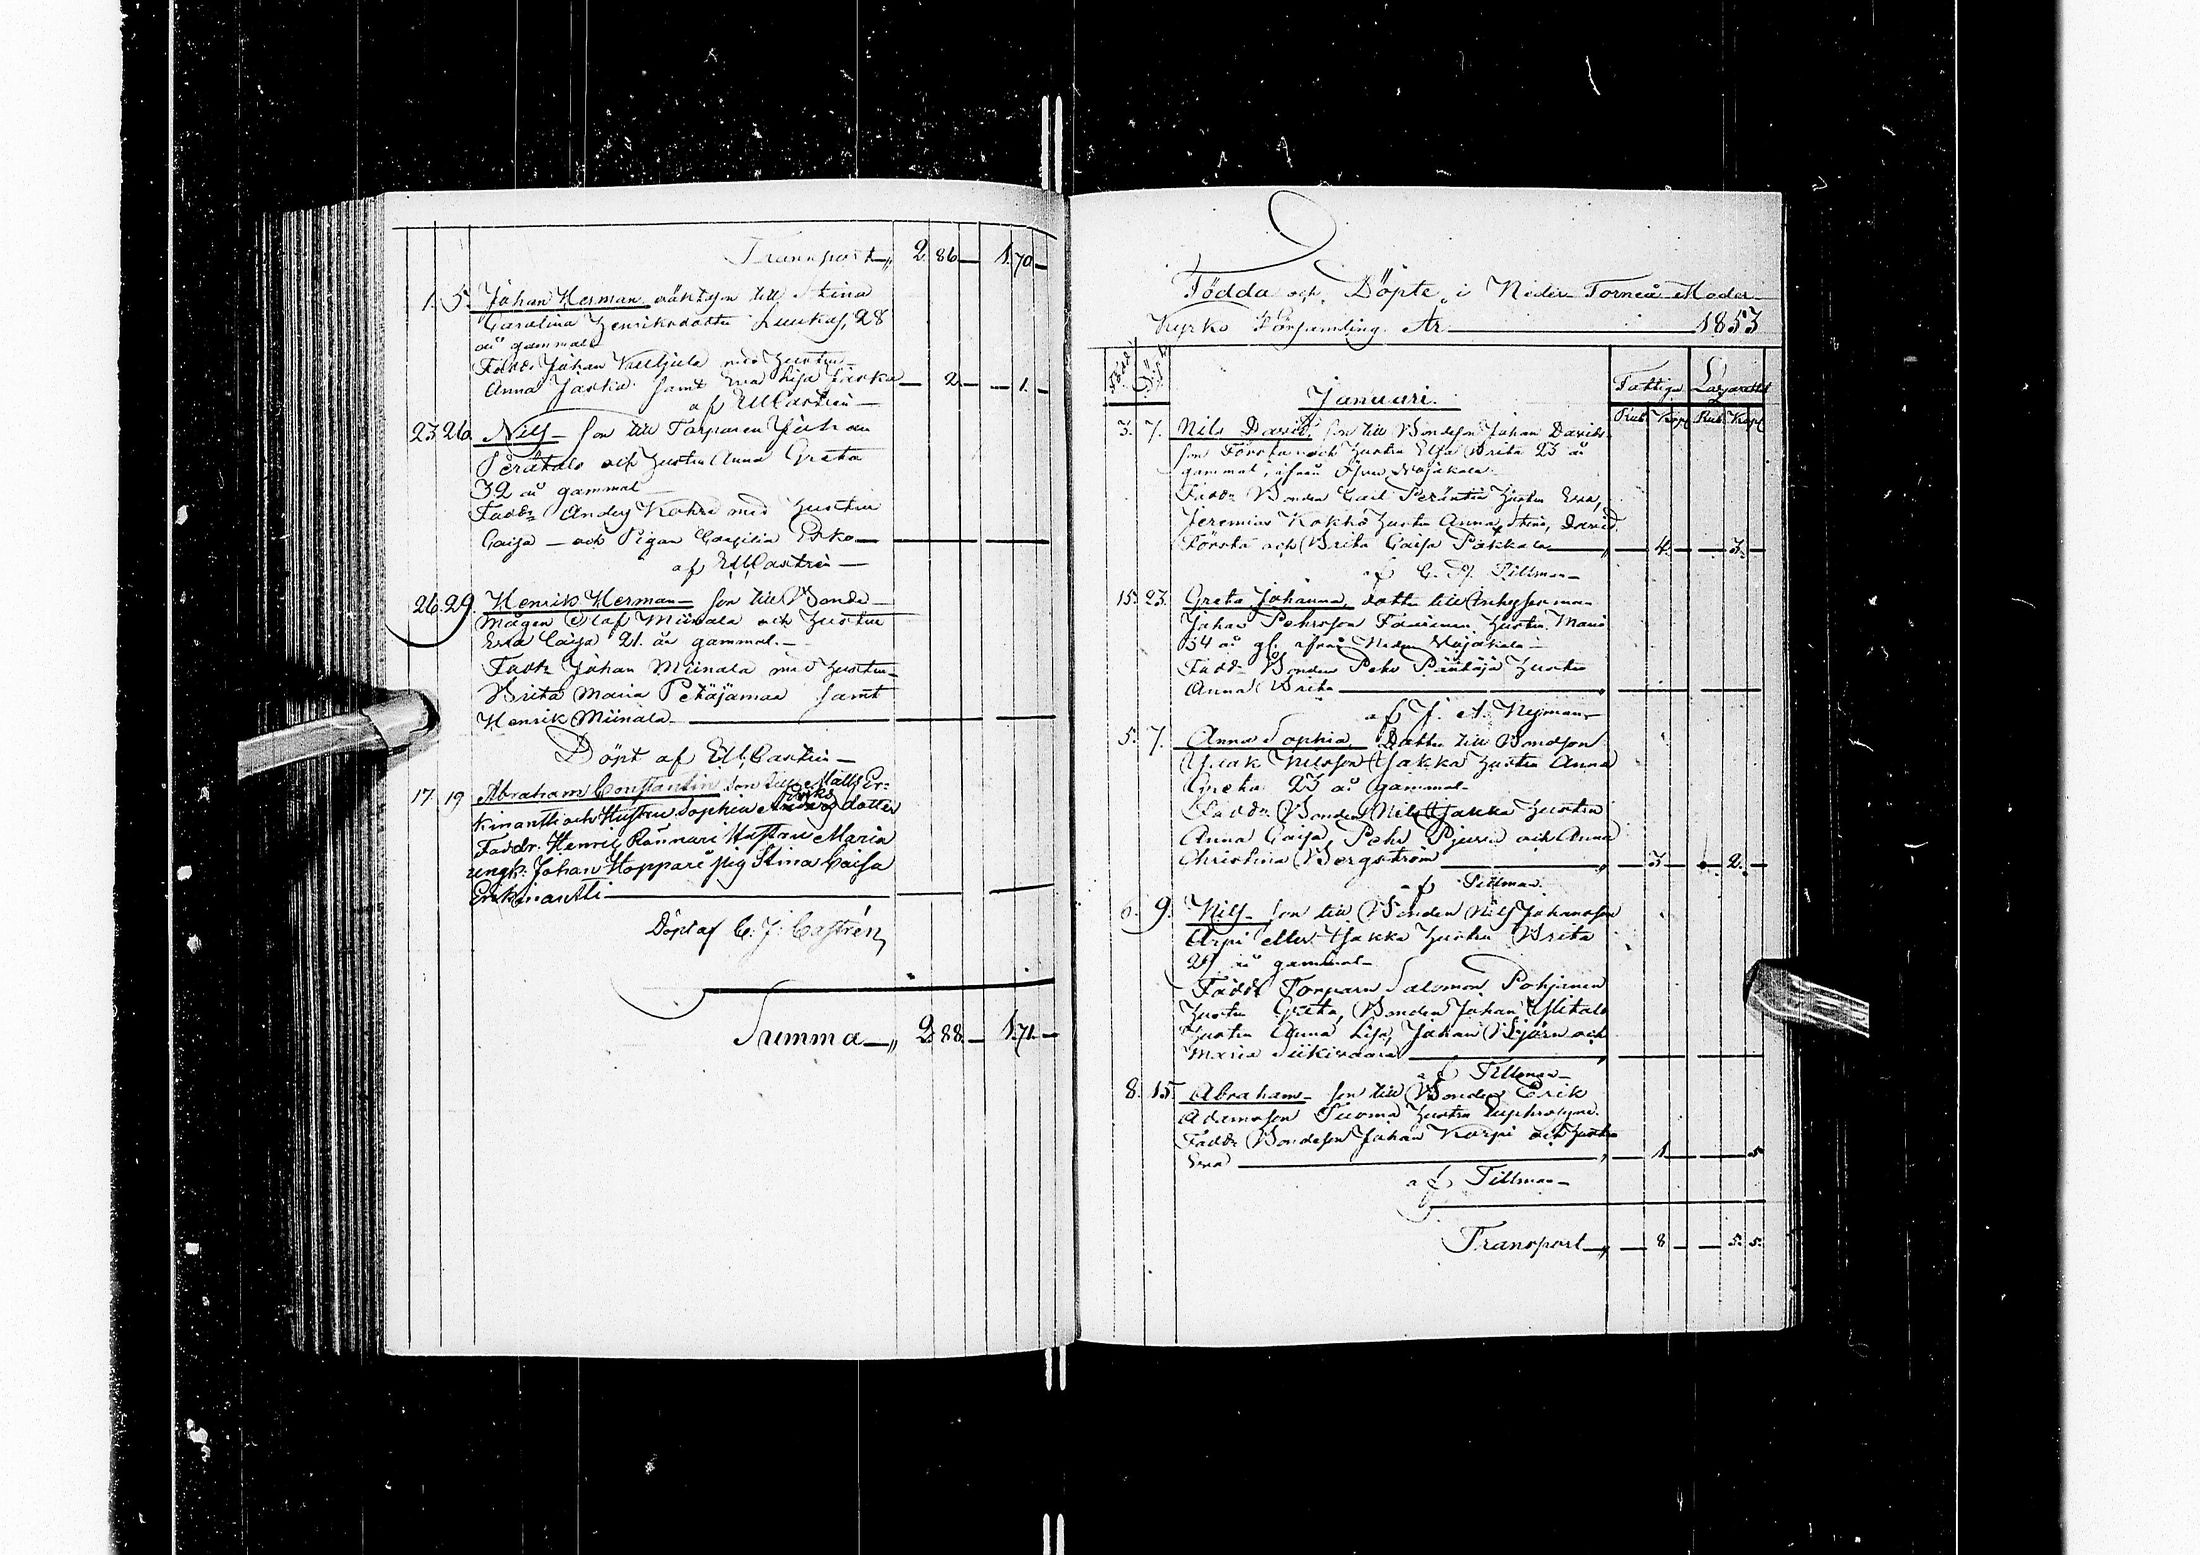 Transport 2. 86 1. 70
1. 5. Johan Herman oäkta son till Stina
Carolina Henriksdotter 28
år gammal
Faddr Johan med Hustru
Anna Jaako samt Eva Lisa Jaako 2 1.
af E M Castrén
23. 26. Nils son till Torparen Johan
Perätalo och Hustru Anna Greta
32 år gammal
Faddr Anders med Hustru
Caisa och Pigan Cecilia Esko
af E M Castrén
26. 29. Henrik Herman son till Bonde
mågen Olof Miinala och Hustru
Eva Caisa 21. år gammal.
Faddr Johan Miinala med Hustru
Brita Maria Petäjämaa samt
Henrik Miinala
Döpt af E M Castrén
17 19 Abraham Constantin Son till Matts Er-
kinantti och Hustru Sophia Eriks dotter
Faddr. Henric Rannari Hustru Maria
ungk. Johan Hoppari pig Stina Caisa
Erkinantti
Döpt af C. J. Castrén
Summa 2. 88. 1. 71.
Födda och Döpte i Neder Torneå Moder
Kyrko Församling År 1853
Född Döpt
Januari.
Fattiga Lazarettet
Rub. Kop. Rub. Kop.
3. 7. Nils David, son till Bondeson Johan Davids-
son Första och Hustru Elsa Brita 23 år
gammal, ifrån Öfver Wojakala
Faddr Bonden Carl Hustru Eva,
Jeremias Kokko Hustru Anna Stina, David
Första och Brita Caisa Pakkala 4. 3.
af C. J. Tillman
15. 23. Greta Johanna, dotter till Inhysesman
Johan Pehrsson Hustru Maria
34 år gl. ifrån Neder Wojakala
Faddr Bonden Pehr Hustru
Anna Brita
af J. A. Nyman
5. 7. Anna Sophia, Dotter till Bondeson
Isaak Nilsson Hustru Anna
Greta 23 år gammal
Faddr Bonden Nils Hustru
Anna Caisa, Pehr och Anna
Christina Bergström 3 2.
af Tillman.
6. 9. Nils son till Bonden Nils Johansson
Arpi eller Hustru Brita
år gammal
Faddr Torparn Salomon Pohjanen
Hustru Greta, Bonden Johan Ylitalo
Hustru Anna Lisa, Johan Björn och
Maria
af Tillman
8. 15. Abraham son till Bonden Erik
Adamsson Tuoma Hustru Euphrosyne.
Faddr Bondeson Johan Karpi och Hustru
Eva 1 5
af Tillman
Transport 8 5. 5.